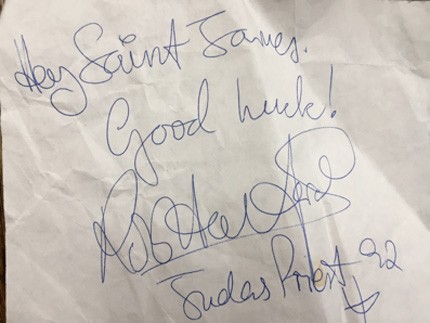 Hey Saint James.
Good luck!
Rob Halford
Judas Priest 92